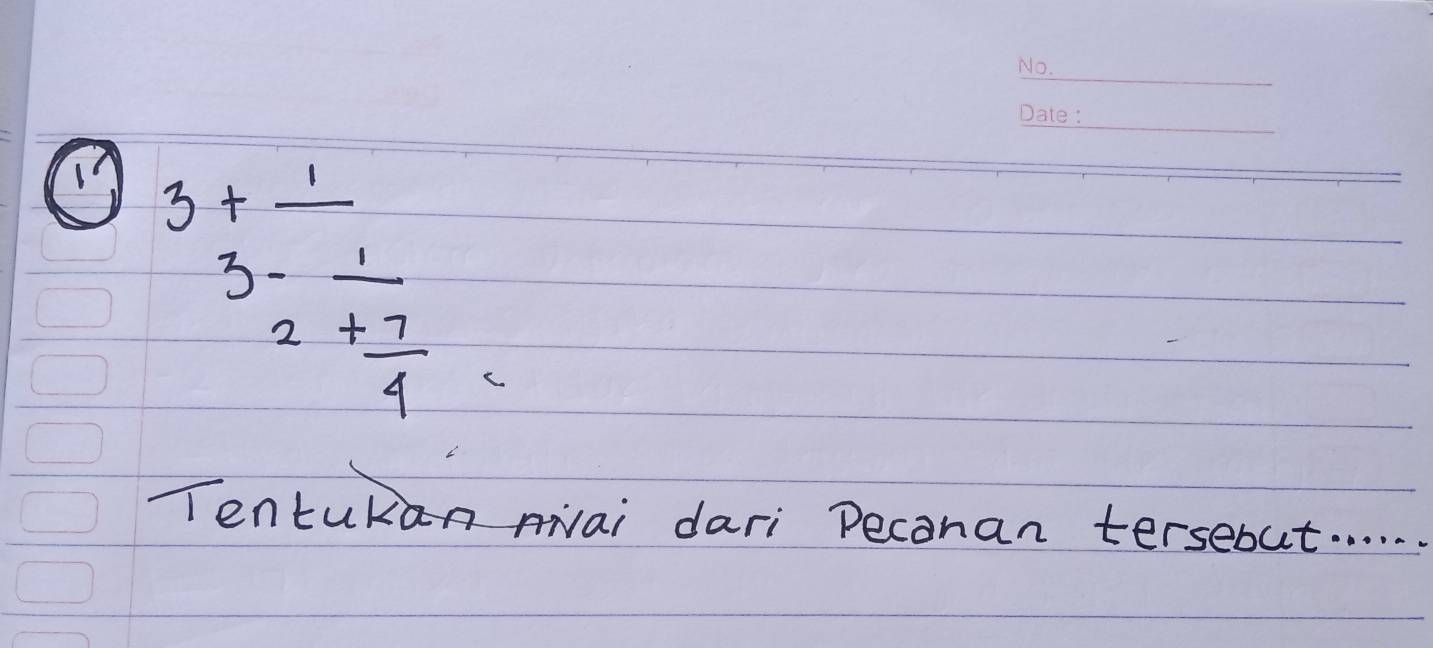 No.
Date :
11 3 + 1
3 - 1
2 + 7
4
Tentukan nilai dari Pecahan tersebut......